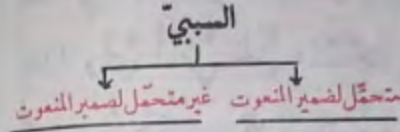 السببيّ
متحمّل لضمير المنعوت
غير متحمّل لضمير المنعوت